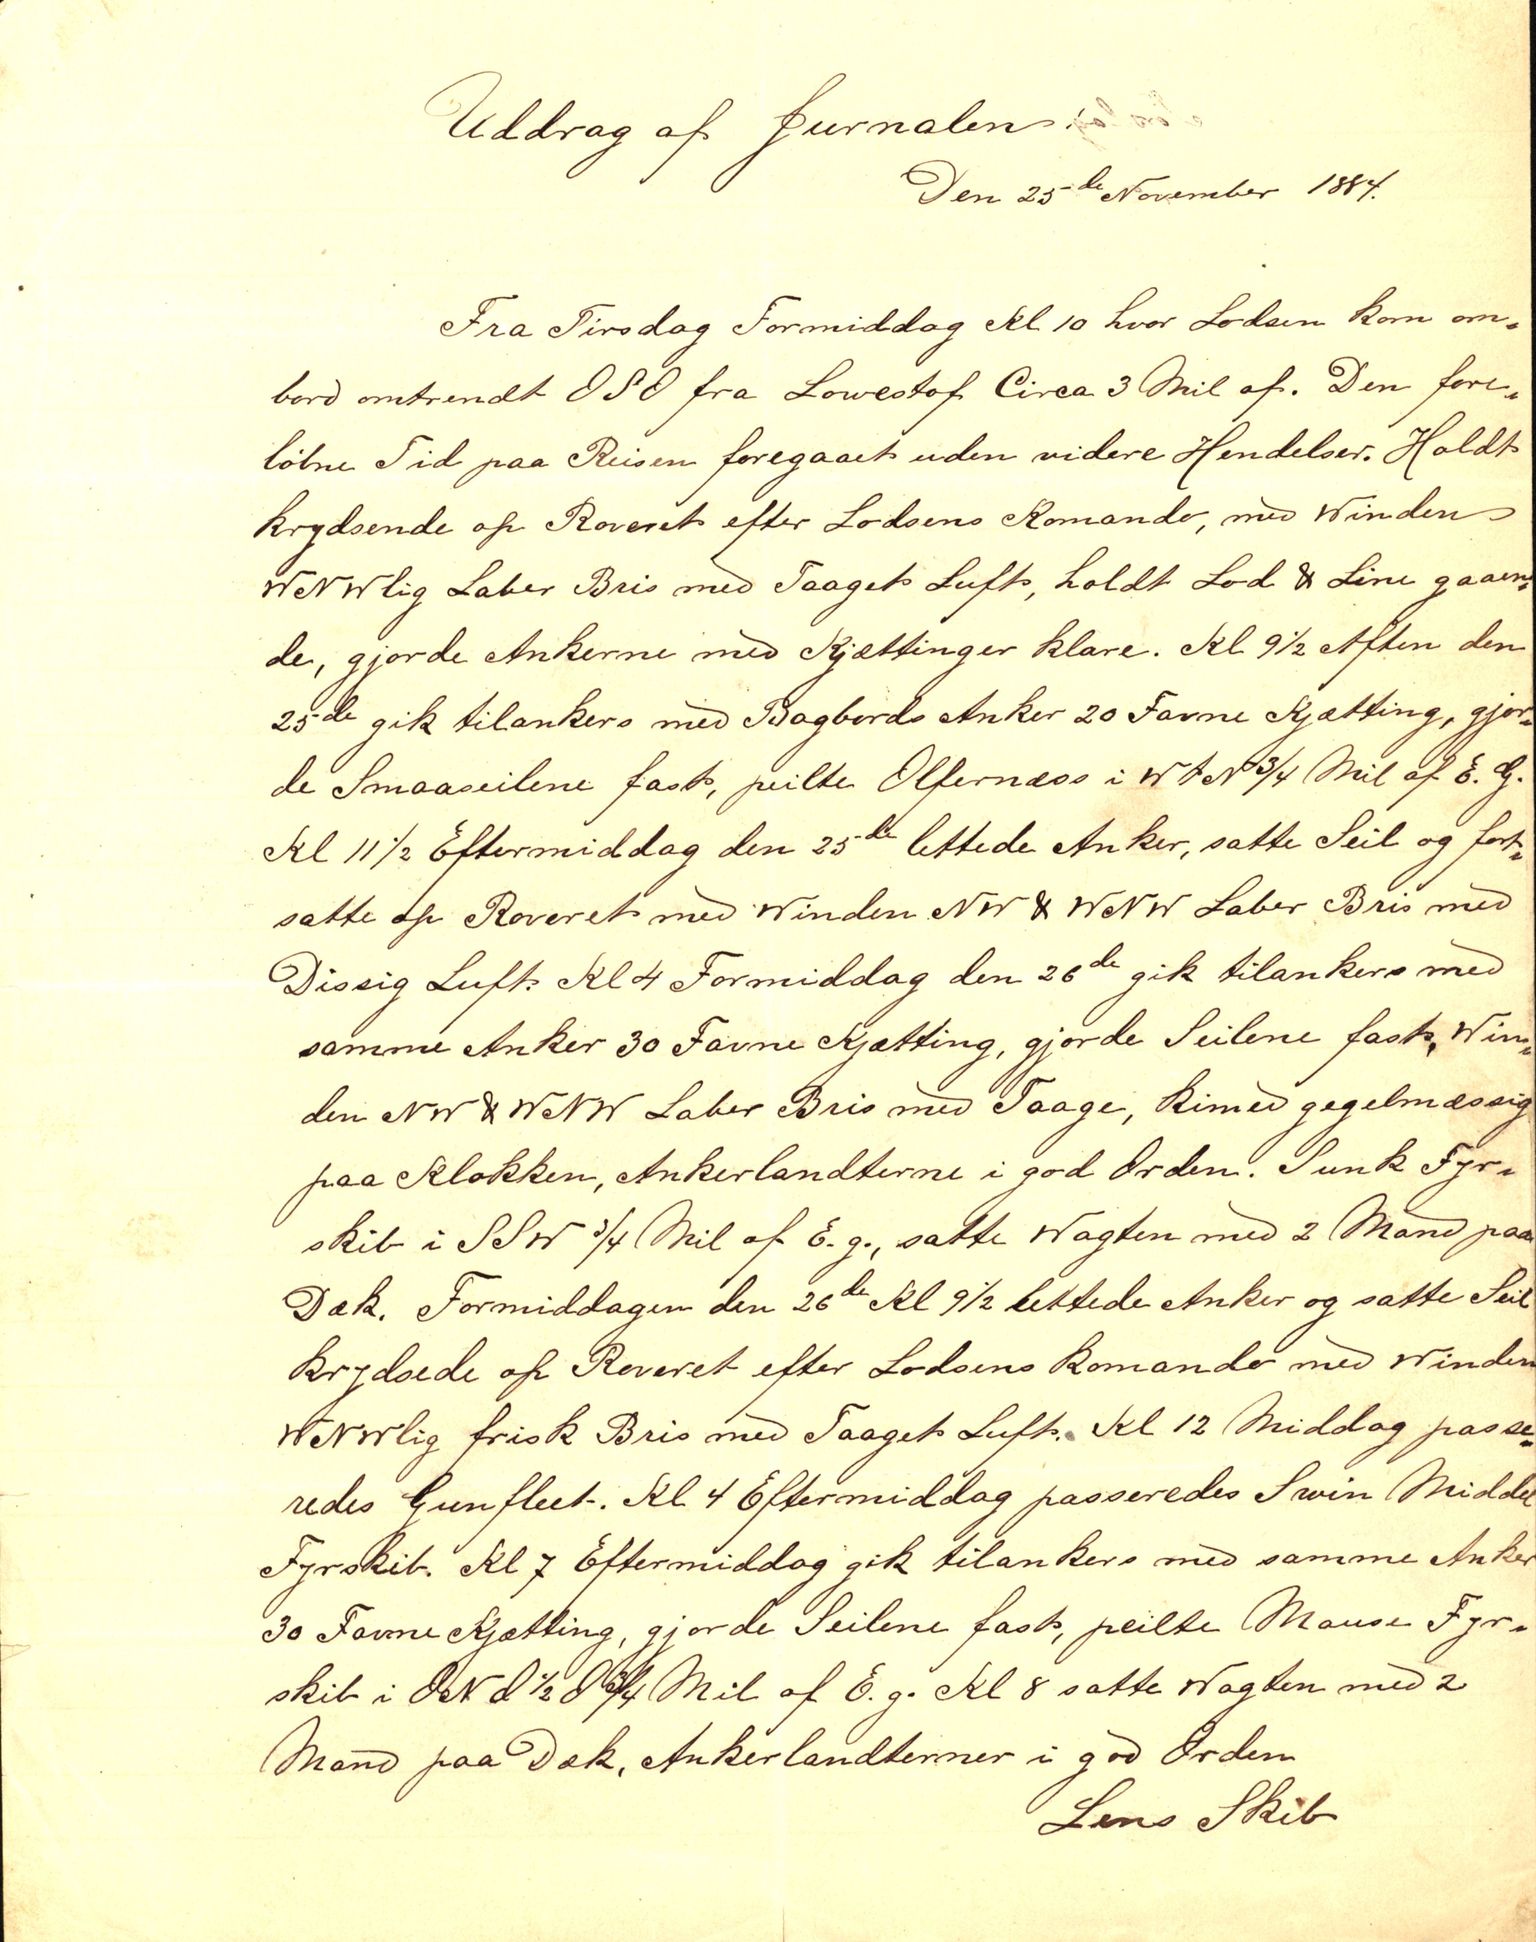 Uddrag af Jurnalen.
Den 25de November 1884.
Fra Tirsdag Formiddag Kl 10 hvor Lodsen kom om-
bord omtrendt OSO fra Lowestof Circa 3 Mil af. Den fore-
löbne Tid paa Reisen foregaaet uden videre Hendelser. Holdt
krydsende op Roveret efter Lodsens Komando, med Winden
WNWlig Laber Bris med Taaget Luft, holdt Lod & Line gaaen-
de, gjorde Ankerne med Kjættinger klare. Kl 9½ Aften den
25de gik tilankers med Bagbords Anker 20 Favne Kjætting, gjor-
de Smaaseilene fast, peilte Olfernæss i WtN ¾ Mil af E. G.
Kl 11½ Eftermiddag den 25de lettede Anker, satte Seil og fort-
satte op Roveret med Winden NW & WNW Laber Bris med
Dissig Luft. Kl 4 Formiddag den 26de gik tilankers med
samme Anker 30 Favne Kjætting, gjorde Seilene fast, Win-
den NW & WNW Laber Bris med Taage, kimed gegelmæssig
paa Klokken, Ankerlandterne i god Orden. Sunk Fyr-
skib i SSW ¾ Mil af E. g., satte Wagten med 2 Mand paa
Dæk. Formiddagen den 26de Kl 9½ lettede Anker og satte Seil
krydsede op Roveret efter Lodsens komando med Winden
WNWlig frisk Bris med Taaget Luft. Kl 12 Middag passe-
redes Gunfleet. Kl 4 Eftermiddag passeredes Swin Middel
Fyrskib. Kl 7 Eftermiddag gik tilankers med samme Anker
30 Favne Kjætting, gjorde Seilene fast, peilte Mause Fyr-
skib i ½ O ¾ Mil af E. g. Kl 8 satte Wagten med 2
Mand paa Dæk, Ankerlandterner i god Orden
Lens Skib